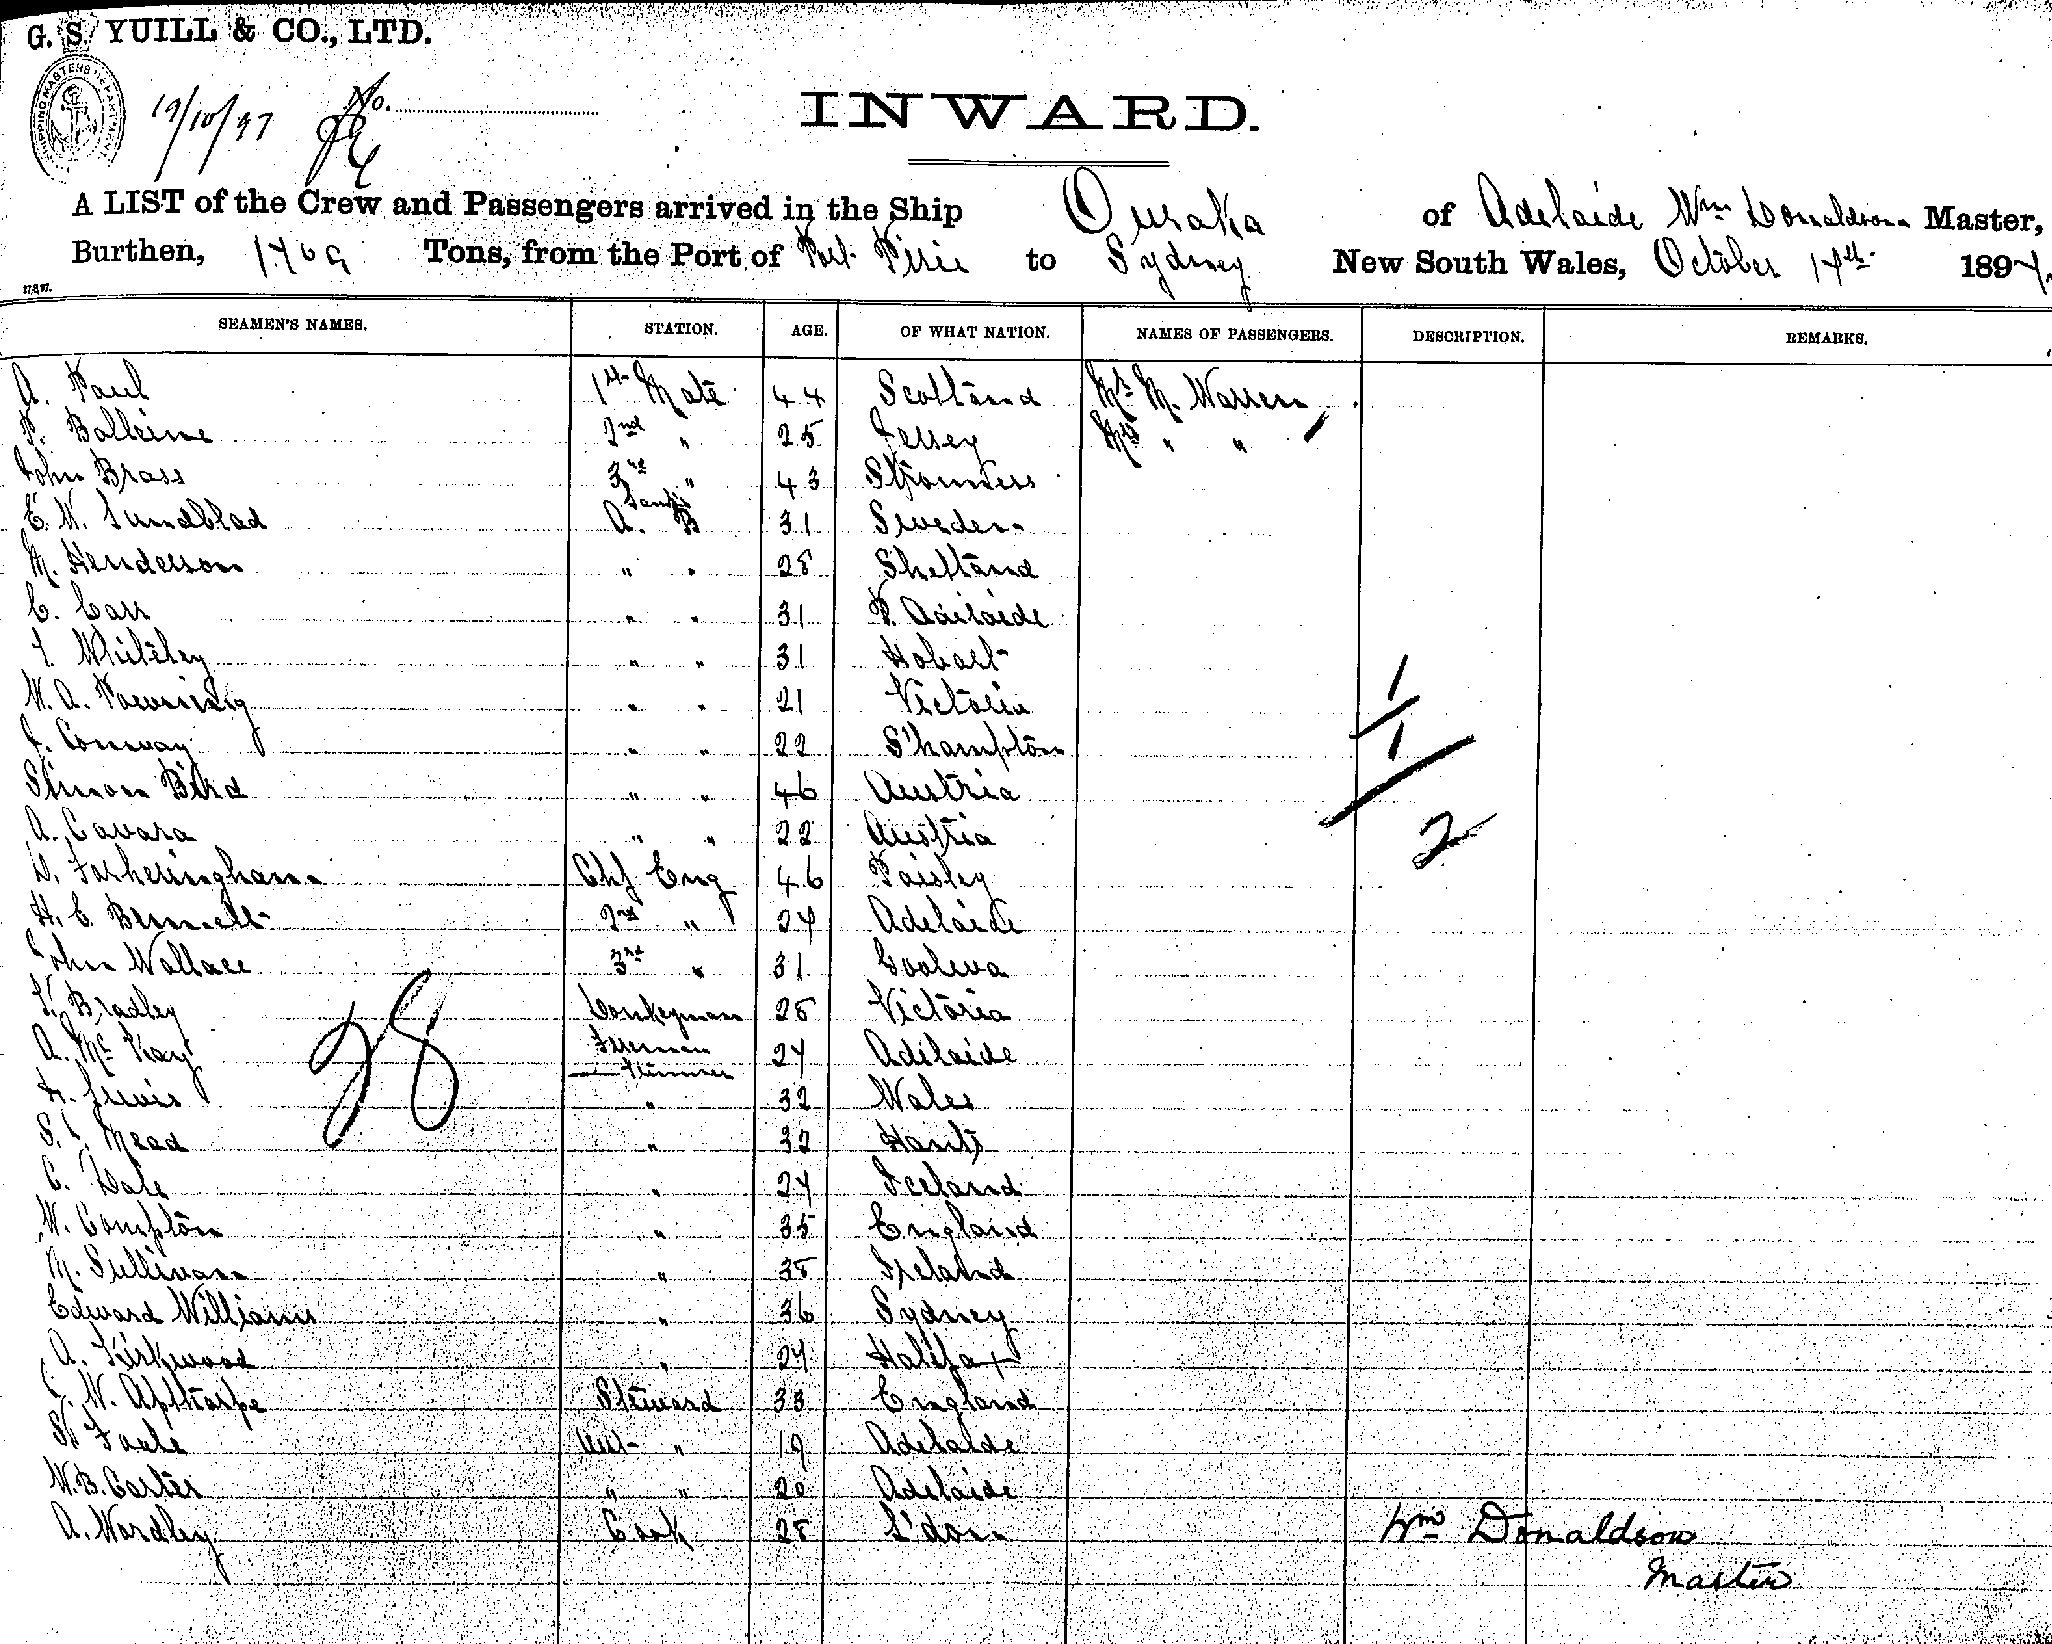 G. S. YUILL & CO., LTD.
SHIPPING MASTERS DEPARTMENT
19/10/97 No.
INWARD.
A LIST of the Crew and Passengers arrived in the Ship Ouraka of Adelaide Wm Donaldson Master,
Burthen, 1709 Tons, from the Port of Port Pirie to Sydney New South Wales, October 17th 1897.
SEAMEN'S NAMES. STATION. AGE. OF WHAT NATION. NAMES OF PASSENGERS. DESCRIPTION. REMARKS.
A. Paul 1st Mate 44 Scotland Mr M. Warren
P. Balleine 2nd " 25 Jersey Mrs " "
John Brass 3rd " 43 Stromness
E. W. Lundblad Lamps A. B 31 Sweden
M. Henderson " " 28 Shetland
C. Carr " " 31 P. Adelaide
Whiteley " " 31 Hobart
W. A. Powning " " 21 Victoria
J. Conway " " 22 S'hampton
Simon Bird " " 46 Austria
A. Cavara " " 22 Austria
D. Fotheringham Chf Eng 46 Paisley
H. C. Bennett 2nd " 27 Adelaide
John Wallace 3rd " 31 Goolwa
Bradley Donkeyman 28 Victoria
A. McKay Fireman 27 Adelaide
Trimmer
H. Lewis " 32 Wales
S. Mead " 32 Hants
C. Dale " 27 Iceland
W. Compton " 35 England
M. Sullivan " 38 Ireland
Edward Williams " 36 Sydney
A. Kirkwood " 27 Halifax
J. W. Apthorpe Steward 33 England
Foale " 19 Adelaide
W. B. Carter " " 20 Adelaide
A. Wardley Cook 28 L'don
28
1
1
2
Wm Donaldson
Master